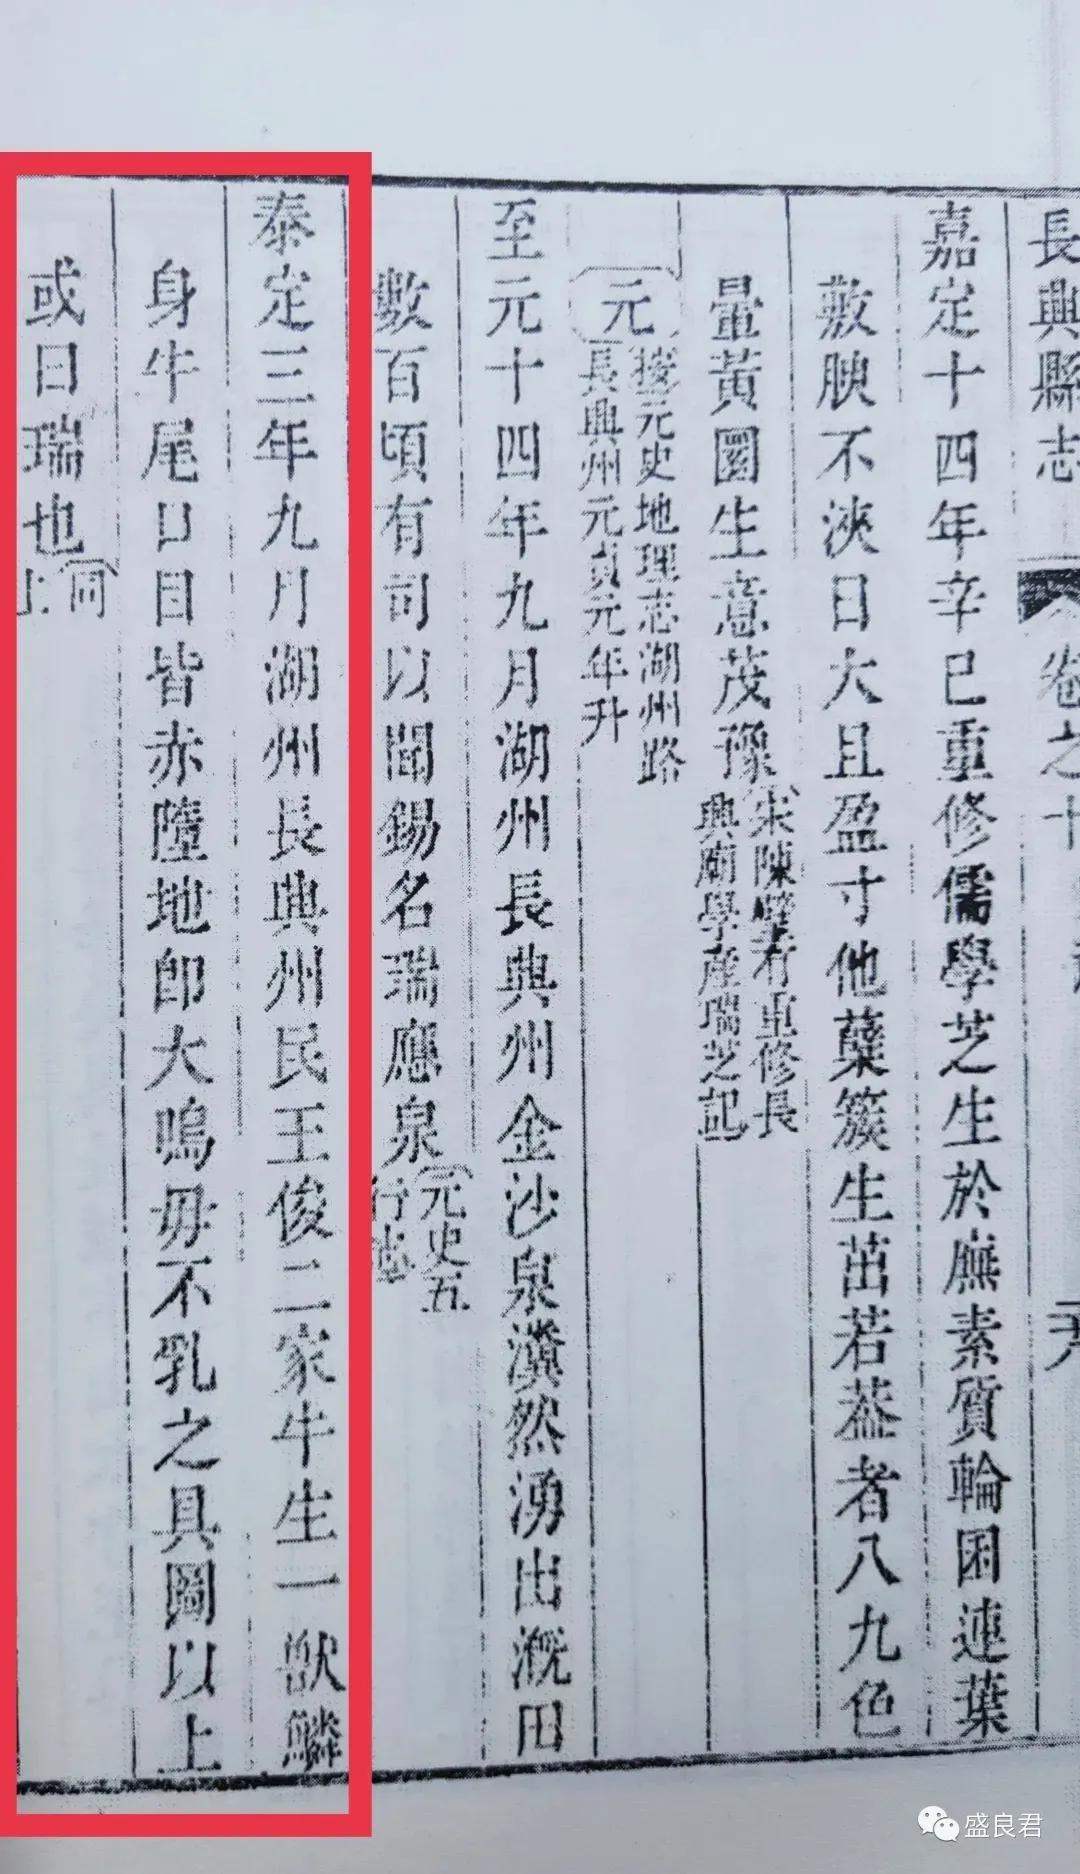 長興縣志
卷之十
嘉定十四年辛巳重修儒學芝生於廡素質輪囷連葉
敷腴不浹日大且盈寸他蘖簇生茁若葢者八九色
暈黃圜生意茂豫
宋陳壁有重修長
興廟學產瑞芝記
元
按元史地理志湖州路
長興州元貞元年升
至元十四年九月湖州長興州金沙泉瀵然湧出溉田
數百頃有司以聞錫名瑞應泉
元史五
行志
泰定三年九月湖州長興州民王俊二家牛生一獸鱗
身牛尾口目皆赤墮地卽大鳴毋不乳之具圖以上
或曰瑞也
同
上
盛良君